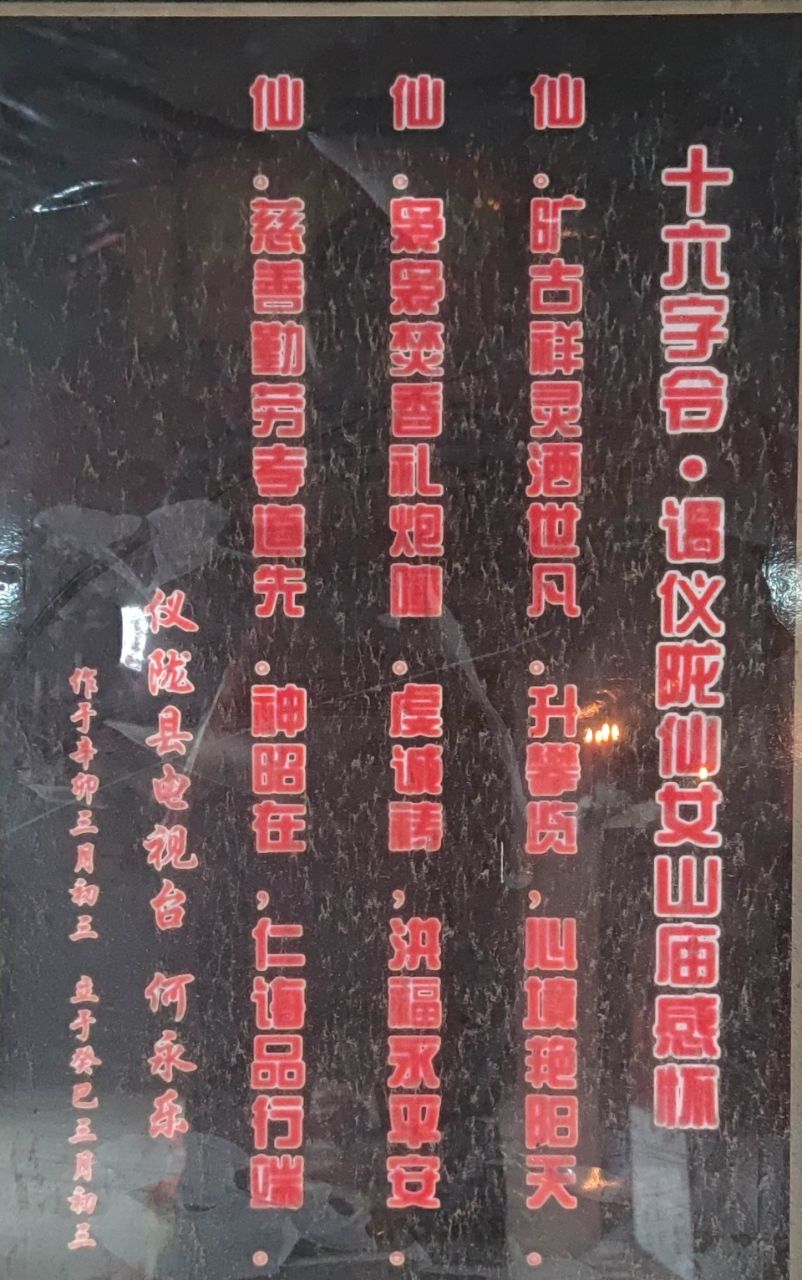 十六字令·谒仪陇仙女山庙感怀
仙。旷古祥灵洒世凡。升攀贤，心境艳阳天.
仙。袅袅焚香礼炮喧。虔诚祷，洪福永平安.
仙。慈善勤劳孝道先。神昭在，仁诲品行端.
仪陇县电视台 何永乐
作于辛卯三月初三 立于癸巳三月初三